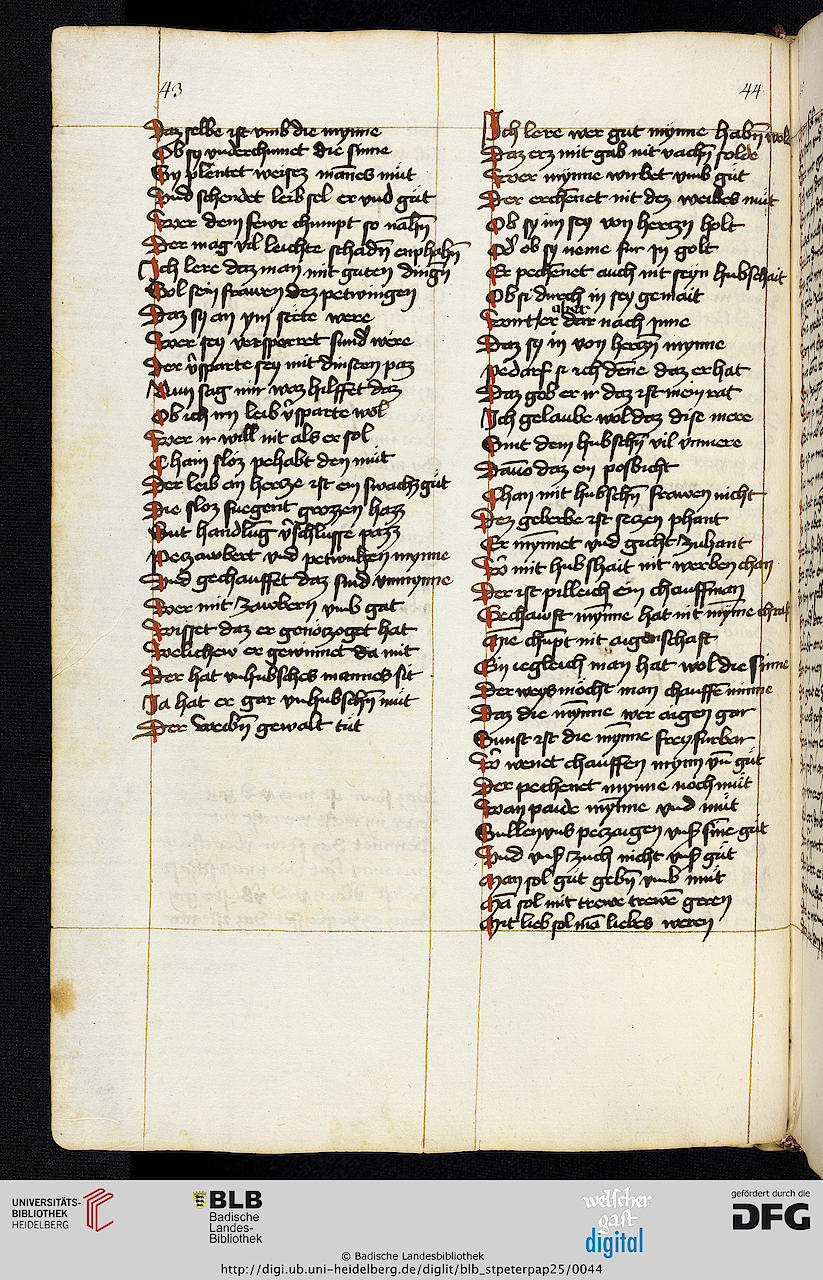 43
Daz selbe ist vmb die mynne
Ob sy vnderchumet die sinne
Sy plentet weisez mānes mut
Vnd schendet leib sel er vnd gut
Wer dem fewr chumpt so nahn̄
Der mag vil leichte schadn̄ enphahn̄
Ich lere daz man mit guten dingn̄
Sol sein frawen dez petwingen
Daz sy an ym stete were
Wer sey versperret sund were
Der v̓sparte sey mit dinsten paz
Nun sag mir waz hilffet daz
Ob ich irn leib v̓sparte wol
Wer ir will nit als er sol
Chain sloz pehabt den mut
Der leib an hercze ist ein swachz gut
Die sloz fuegent grozzen hazz
Gut handlūg v̓schlusse pazz
Pezawbert vnd petwungen mynne
Vnd gechauffet daz sind vnmynne
Wer mit zawbern vmb gat
Wisset daz er genötzoget hat
Welichew er gewinnet da mit
Der hat vnhubsches mannes sit
Ja hat er gar vnhubschn̄ mut
Der weibn̄ gewalt tut
44
Ich lere wer gut mynne habn̄ wolde
Daz erz mit gab nit vachn̄ solde
Wer mynne wirbet vmb gut
Der erchennet nit dez weibes mut
Ob sy im sey von herczn holt
Od̓ ob sy neme fur in golt
Er pechennet auch nit seyn hubschait
Ob si durch in sey gemait
wont er uber dar nach inne
Daz sy in von herczn̄ mynne
pedarf si ich dene daz er hat
Daz geb er ir daz ist mein rat
Ich gelaube wol daz dise mere
Sint dem hubschn̄ vil vnmere
Dauō daz ein posbicht
Chan mit hubschn̄ frawen nicht
Dez geberbe ist seczen phant
Er mynnet vnd gicht zuhant
Wer mit hubshait nit werben chan
Der ist pilleich ein chauffman
Gechawft mȳnne hat nit mȳnne chraft
Mȳne chūpt nit aigenschaft
Ein iegleich man hat wol die sinne
Der weys möcht man chauffen minne
Daz die mȳnne wer aigen gar
Sunst ist die mȳnne frey furbar
Wer wenet chauffen mynn vm̄ gut
Der pechenet mynne noch mut
Wan paide mynne vnd mut
Sullen vns pezaigen vnser sinne gut
Vnd vnser zuch nicht vnser gut
Man sol gut gebn̄ vmb mut
Mā sol mit trewe trewē geren
Mit lieb sol mā liebes weren
UNIVERSITÄTS-
BIBLIOTHEK
HEIDELBERG
BLB
Badische
Landes-
Bibliothek
welscher
gast
digital
gefördert durch die
DFG
© Badische Landesbibliothek
http://digi.ub.uni-heidelberg.de/diglit/blb_stpeterpap25/0044